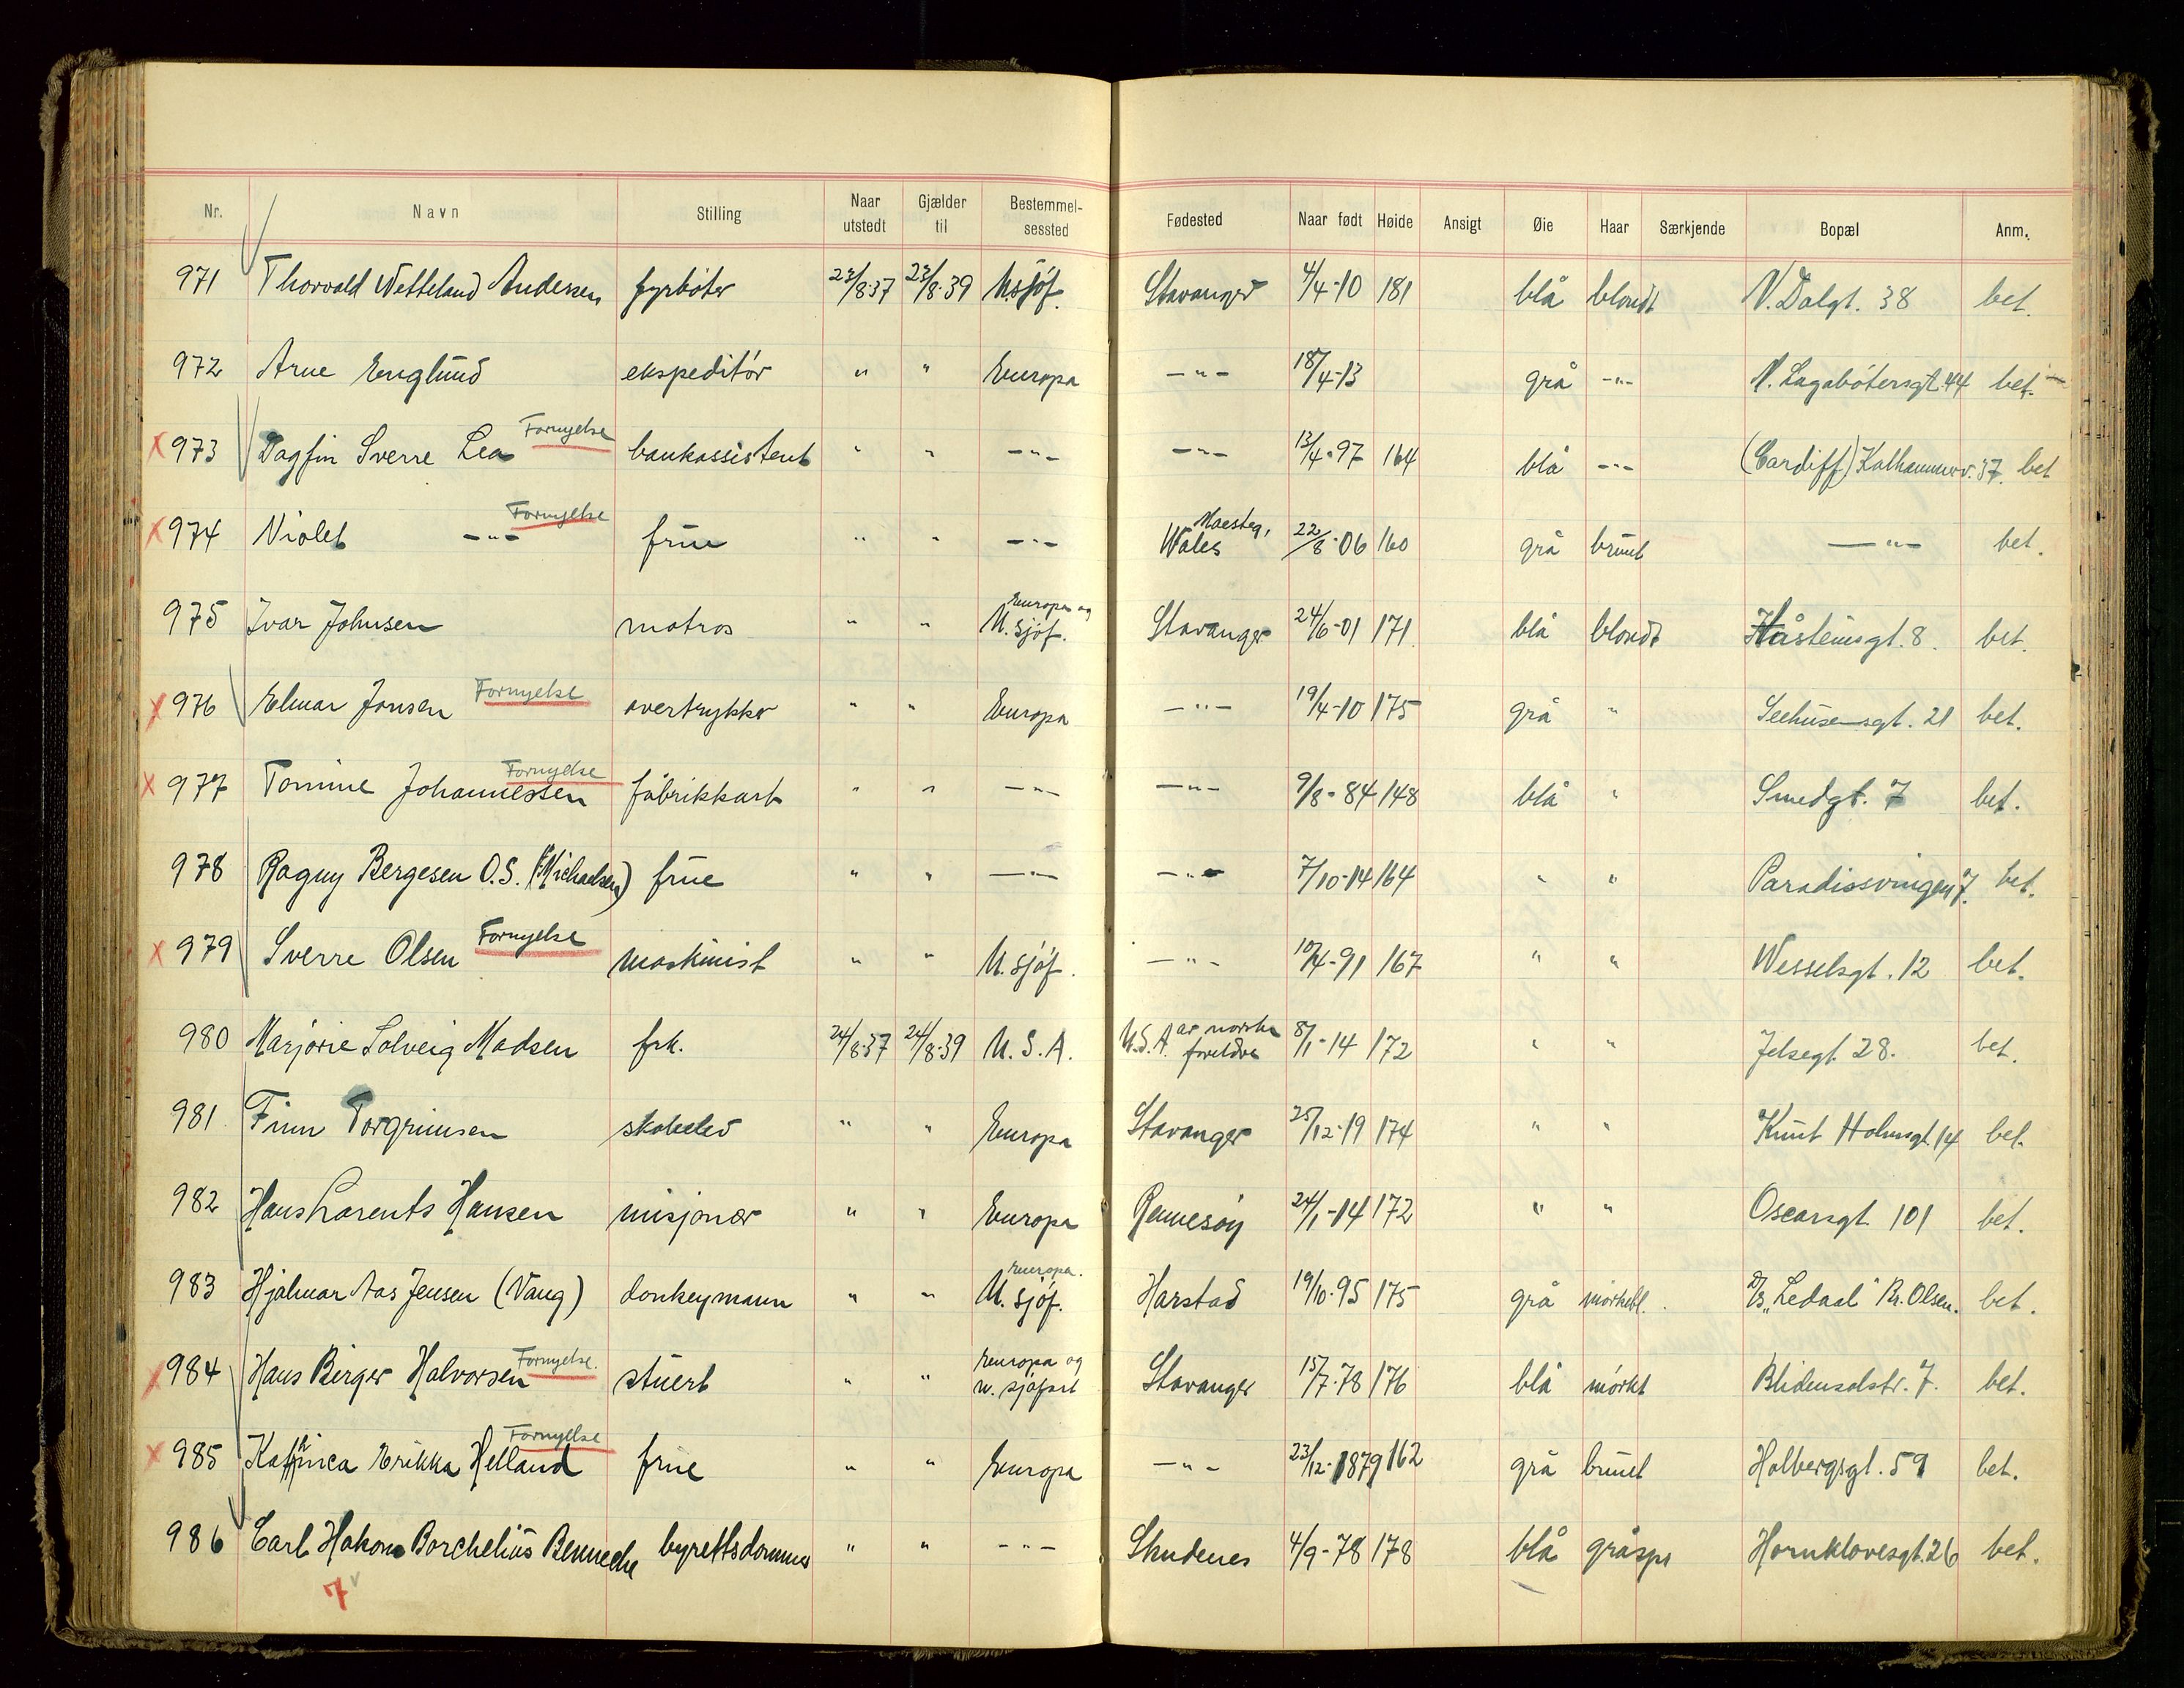 Nr. Navn Stilling Naar utstedt Gjælder til Bestemmelsessted Fødested Naar født Høide Ansigt Øie Haar Særkjende Bopæl Anm.
971 Thorvald Wetteland Andersen fyrbøter 23/8-37 23/8-39 Usjøf. Stavanger 4/4-10 181 blå blondt N. Dalgt. 38 bet.
972 Arne Englund ekspeditør " " Europa -"- 18/4-13 grå -"- M. Lagabøtersgt. 44 bet.
Fornyelse
x 973 Dagfin Sverre Lea bankassistent " " -"- -"- 13/4-97 164 blå -"- (Cardiff) Kalhammerv. 37. bet
Fornyelse Maesteg,
x 974 Violet -"- frue " " -"- Wales 22/8-06 160 grå brunt -"- bet.
Europa og
975 Ivar Johnsen matros " " U. sjøf. Stavanger 24/6-01 171 blå blondt Håsteinsgt. 8. bet.
Fornyelse
x 976 Elmar Jonsen overtrykker " " Europa -"- 19/4-10 175 grå " Seehusensgt. 21 bet.
Fornyelse
x 977 Tomine Johannessen fabrikkarb " " -"- -"- 9/8-84 148 blå " Smedgt. 7 bet.
978 Ragny Bergesen O.S. (f. Michaelsen) frue " " -"- -"- 7/10-14 164 " " Paradissvingen 7. bet.
Fornyelse
x 979 Sverre Olsen maskinist " " U. sjøf. -"- 10/4-91 167 " " Wesselsgt. 12 bet.
av norske
980 Marjorie Solveig Madsen frk. 24/8-37 24/8-39 U.S.A. U.S.A. foreldre 8/1-14 172 " " Jelsegt. 28. bet.
981 Finn Torgrimsen skoleelev " " Europa Stavanger 25/12-19 174 " " Knut Holmsgt. 14 bet.
982 Hans Lorents Hansen misjonær " " Europa Rennesøy 24/1-14 172 " " Oscarsgt. 101 bet.
Europa.
983 Hjalmar Aas Jensen (Vang) donkeymann " " U. sjøf. Harstad 19/10-95 175 grå mørkebl. D/S "Ledaal" Kr. Olsen. bet.
Fornyelse. Europa og
x 984 Hans Birger Halvorsen stuert " " u. sjøfart Stavanger 15/7-78 176 blå mørkt Blidensolstr. 7. bet.
Fornyelse
x 985 Kathinca Erikka Helland frue " " Europa -"- 23/12-1879 162 grå brunt Holbergsgt. 59 bet.
986 Carl Hakon Borchelius Benneche byrettsdommer " " -"- Skudenes 4/9-78 178 blå gråspr Hornklovesgt. 26 bet.
7